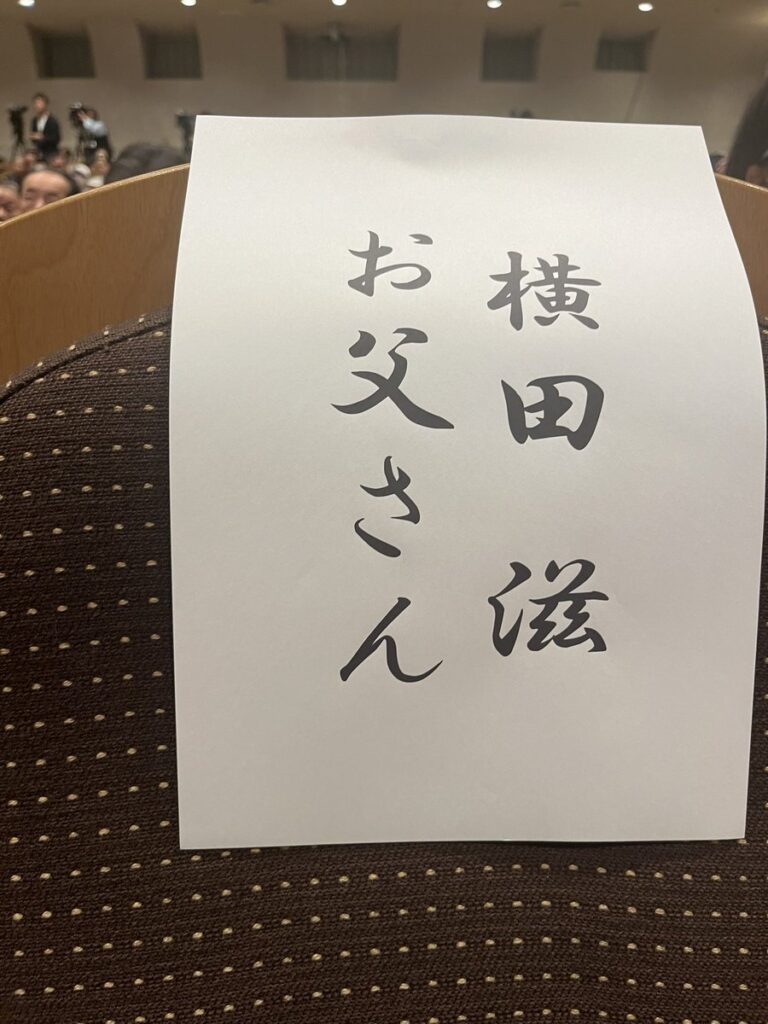 横田 滋
お父さん